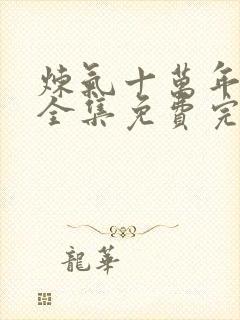 煉氣十萬年
全集免費完
龍華